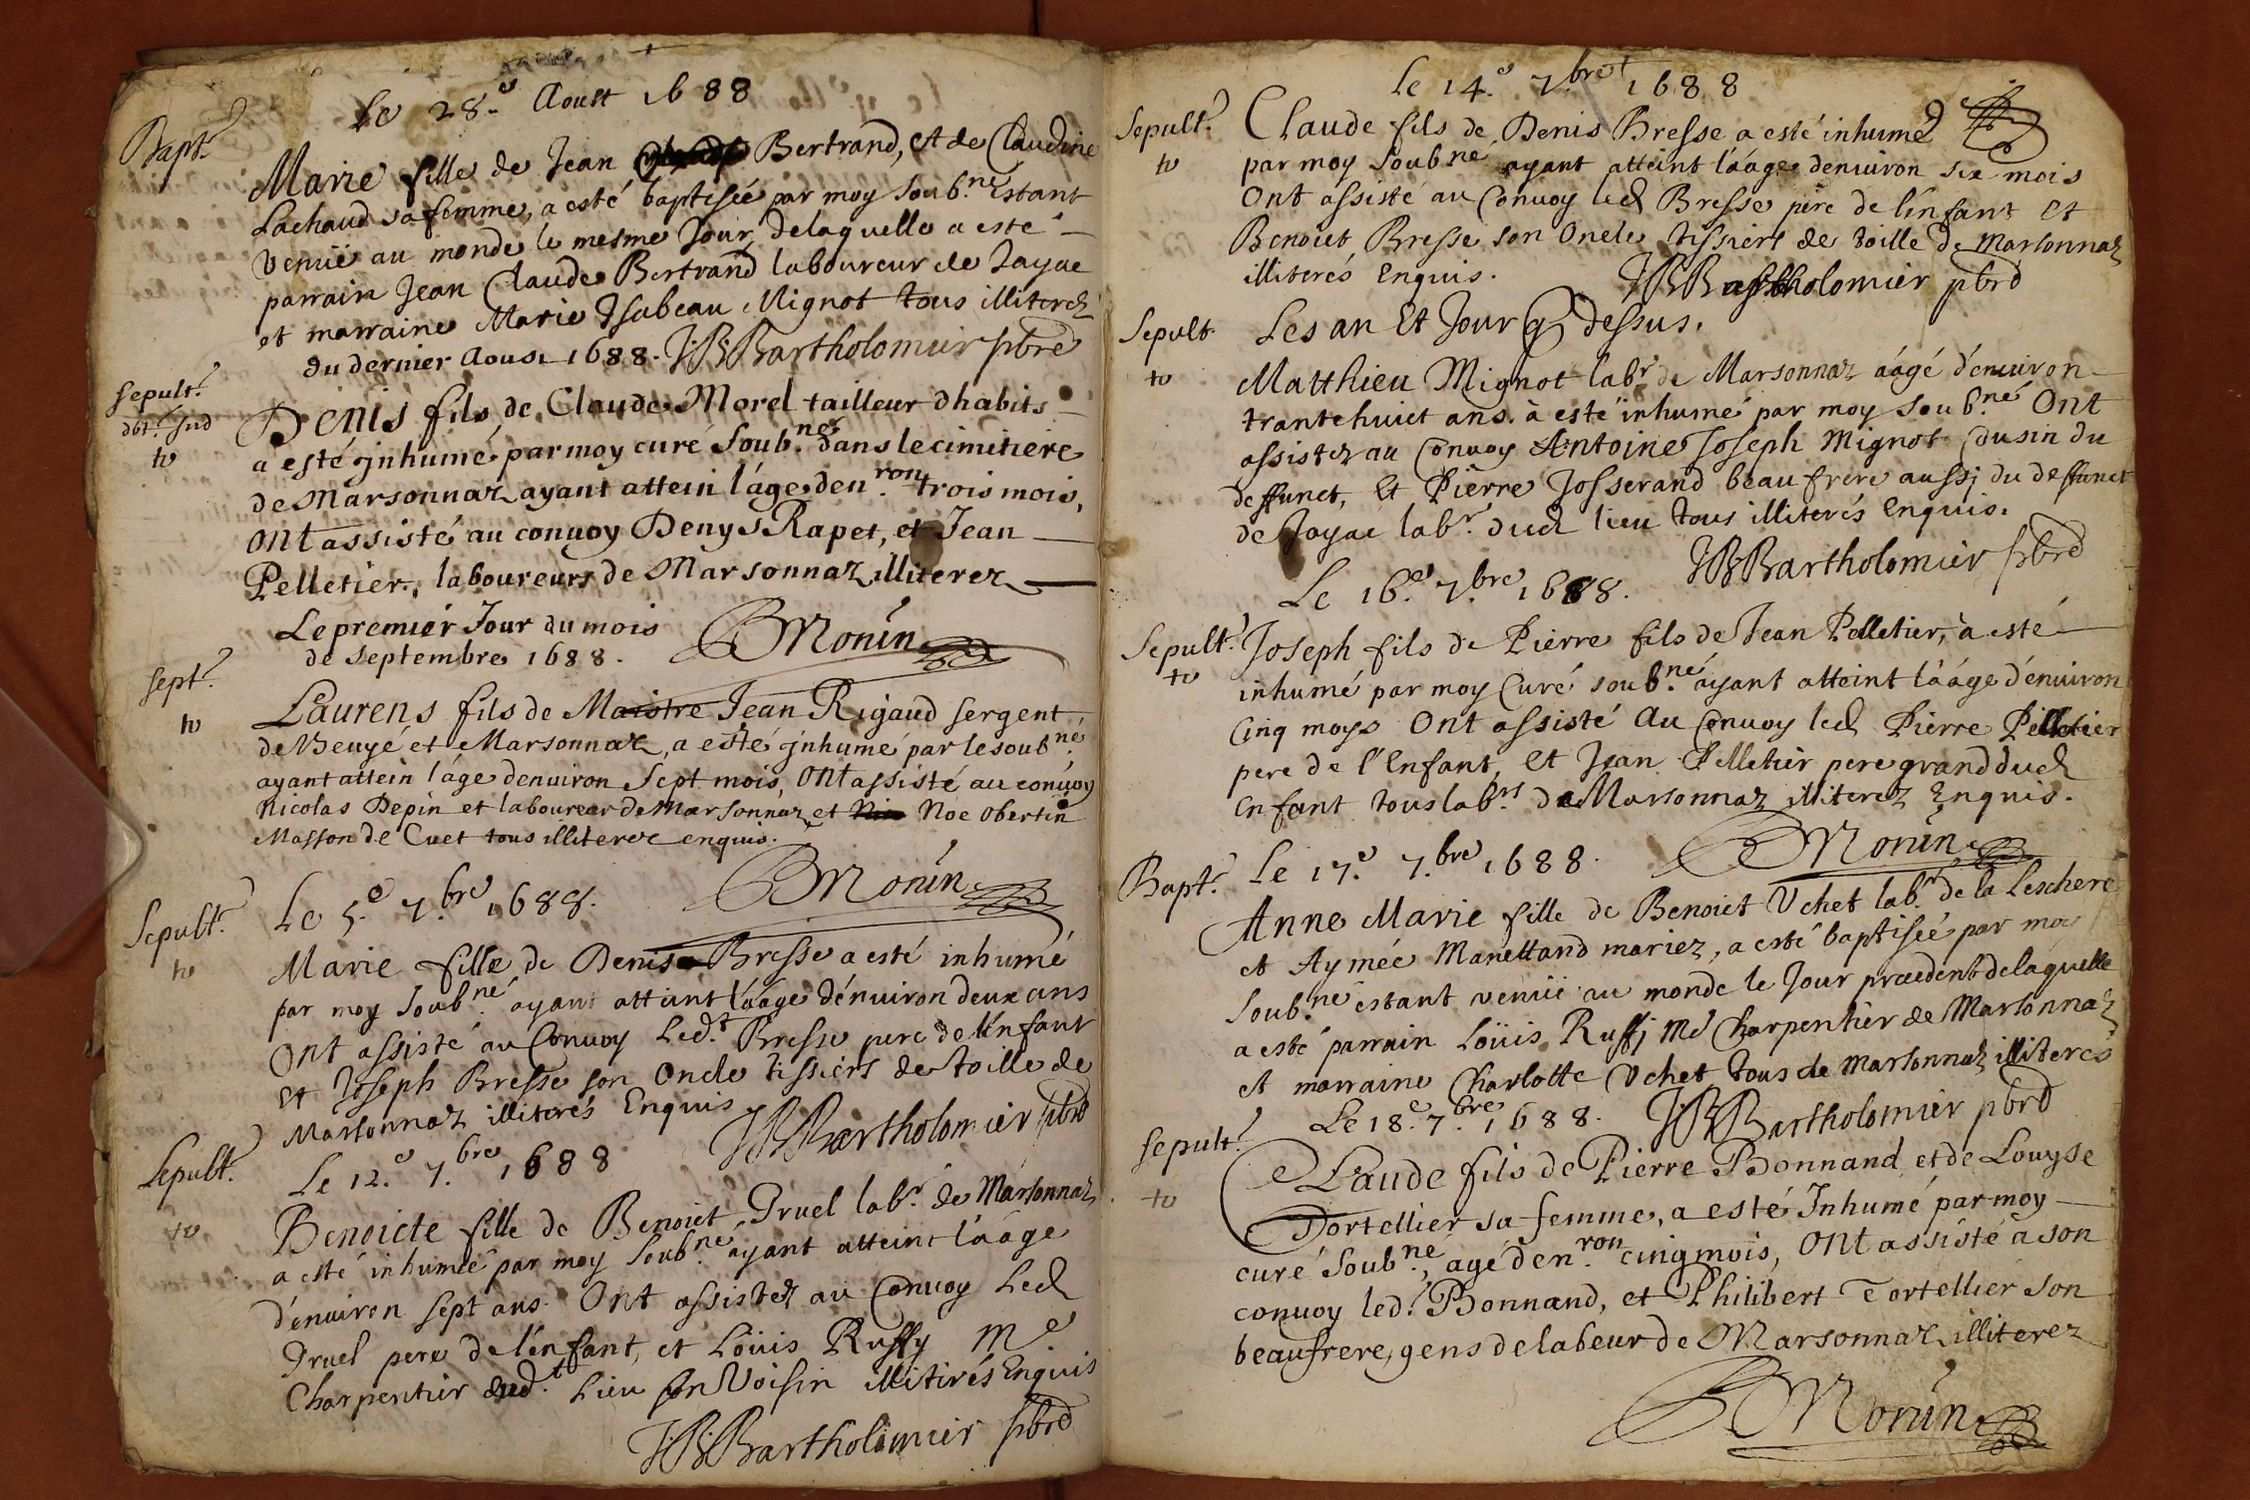 Le 28.e Aoust 1688
Bapt.
Marie fille de Jean Bertrand, et de Claudine
Lachaud sa femme, a esté baptiseé par moy soub.né Estant
venüe au monde le mesme Jour, delaquelle a esté
parrain Jean Claude Bertrand laboureur de Jayac
et marraine Marie Isabeau Mignot tous illiterez
du dernier Aoust 1688. JBBartholomier pbre
sepult.
Denis fils de Claude Morel tailleur dhabits
a esté jnhumé par moy curé soub.né dans le cimitiere
de Marsonnaz ayant attein l'áge den.ron trois mois,
ont assisté au convoy Denys Rapet, et Jean
Pelletier, laboureurs de Marsonnaz illiterez
Le premier Jour du mois
de septembre 1688. BMonin
sept.
Laurens fils de Maistre Jean Rigaud sergent
de Beuyé et Marsonnaz, a esté jnhumé par le soub.né
ayant attein l'áge denuiron sept mois, ont assisté au conuoy
Nicolas Depin et laboureur de Marsonnaz, et Noe Obertin
Masson de Cuet tous illiterez enquis.
BMonin
Sepult.
Le 5.e 7.bre 1688.
Marie fille de Denis Bresse a esté inhumé
par moy soub.né ayant atteint l'áage d'énuiron deux ans
Ont assisté au Conuoy Led.t Bresse pere de l'enfant
Et Joseph Bresse son Oncle tissiers de toille de
Marsonnaz illiterés Enquis
JBBartholomier pbre
Sepult.
Le 12.e 7.bre 1688
Benoicte fille de Benoict Druel lab.r de Marsonnaz
a esté inhumeé par moy soub.né ayant atteint l'áage
d'énuiron sept ans. Ont assistez au Conuoy Led
Druel pere de l'énfant, et Löuis Ruffy M.e
Charpentier dud.t Lieu son Voisin illitirés Enquis
JBBartholomier pbre
Le 14.e 7.bre 1688
Sepult.
Claude fils de Denis Bresse a esté inhumé
par moy soub.né ayant atteint l'áage denuiron six mois
Ont assisté au Conuoy led Bresse père de l'énfant Et
Benoict Bresse son Oncle tissiers de toille de Marsonnaz
illiterés Enquis. JBBartholomier pbre
Sepult
Les an Et Jour q dessus.
Matthieu Mignot lab.r de Marsonnaz áagé d'énuiron
trantehuict ans. à esté inhumé par moy soub.né Ont
assistez au Conuoy Antoine Joseph Mignot Cusin du
deffunct, Et Pierre Josserand beaufrere aussj du deffunct
de Jayac lab.r dud lieu tous illiterés Enquis.
JBBartholomier pbre
Le 16.e 7.bre 1688.
Sepult.
Joseph fils de Pierre fils de Jean Pelletier, à esté
inhumé par moy Curé soub.né ayant atteint l'áage d'énuiron
Cinq moys Ont assisté Au Conuoy led Pierre Pelletier
pere de l'Enfant, Et Jean Pelletier pere grand dud
Enfant tous lab.rs de Marsonnaz illiterez Enquis.
BMonin
Bapt.
Le 17.e 7.bre 1688.
Anne Marie fille de Benoict Vchet lab.r de la Leschere
et Aymée mariez, a esté baptiseé par moy
soub.né estant venüe au monde le Jour præcedent delaquelle
a esté parrain Löüis Ruffj Me Charpentier de Marsonnaz
et marraine Charlotte Vchet tous de Marsonnaz illiterés
Le 18.e 7.bre 1688. JBBartholomier pbre
Sepult.
Claude fils de Pierre Bonnand et de Louyse
Tortellier sa femme, a esté Inhumé par moy
curé soub.né, agé den.ron cinq mois, Ont assisté à son
conuoy led.t Bonnand, et Philibert Tortellier son
beaufrere, gens de labeur de Marsonnaz illiterez
BMonin